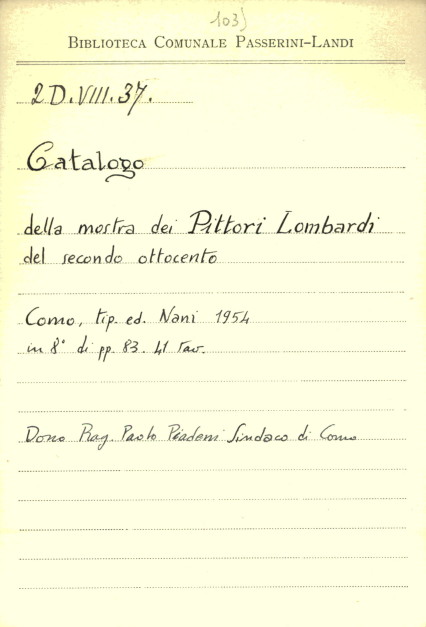 103)
BIBLIOTECA COMUNALE PASSERINI-LANDI
2D.VIII.37.
Catalogo
della mostra dei Pittori Lombardi
del secondo ottocento
Como, tip. ed. Nani 1954
in 8° di pp. 83. 41 tav.
Dono Rag. Paolo Piadeni Sindaco di Como